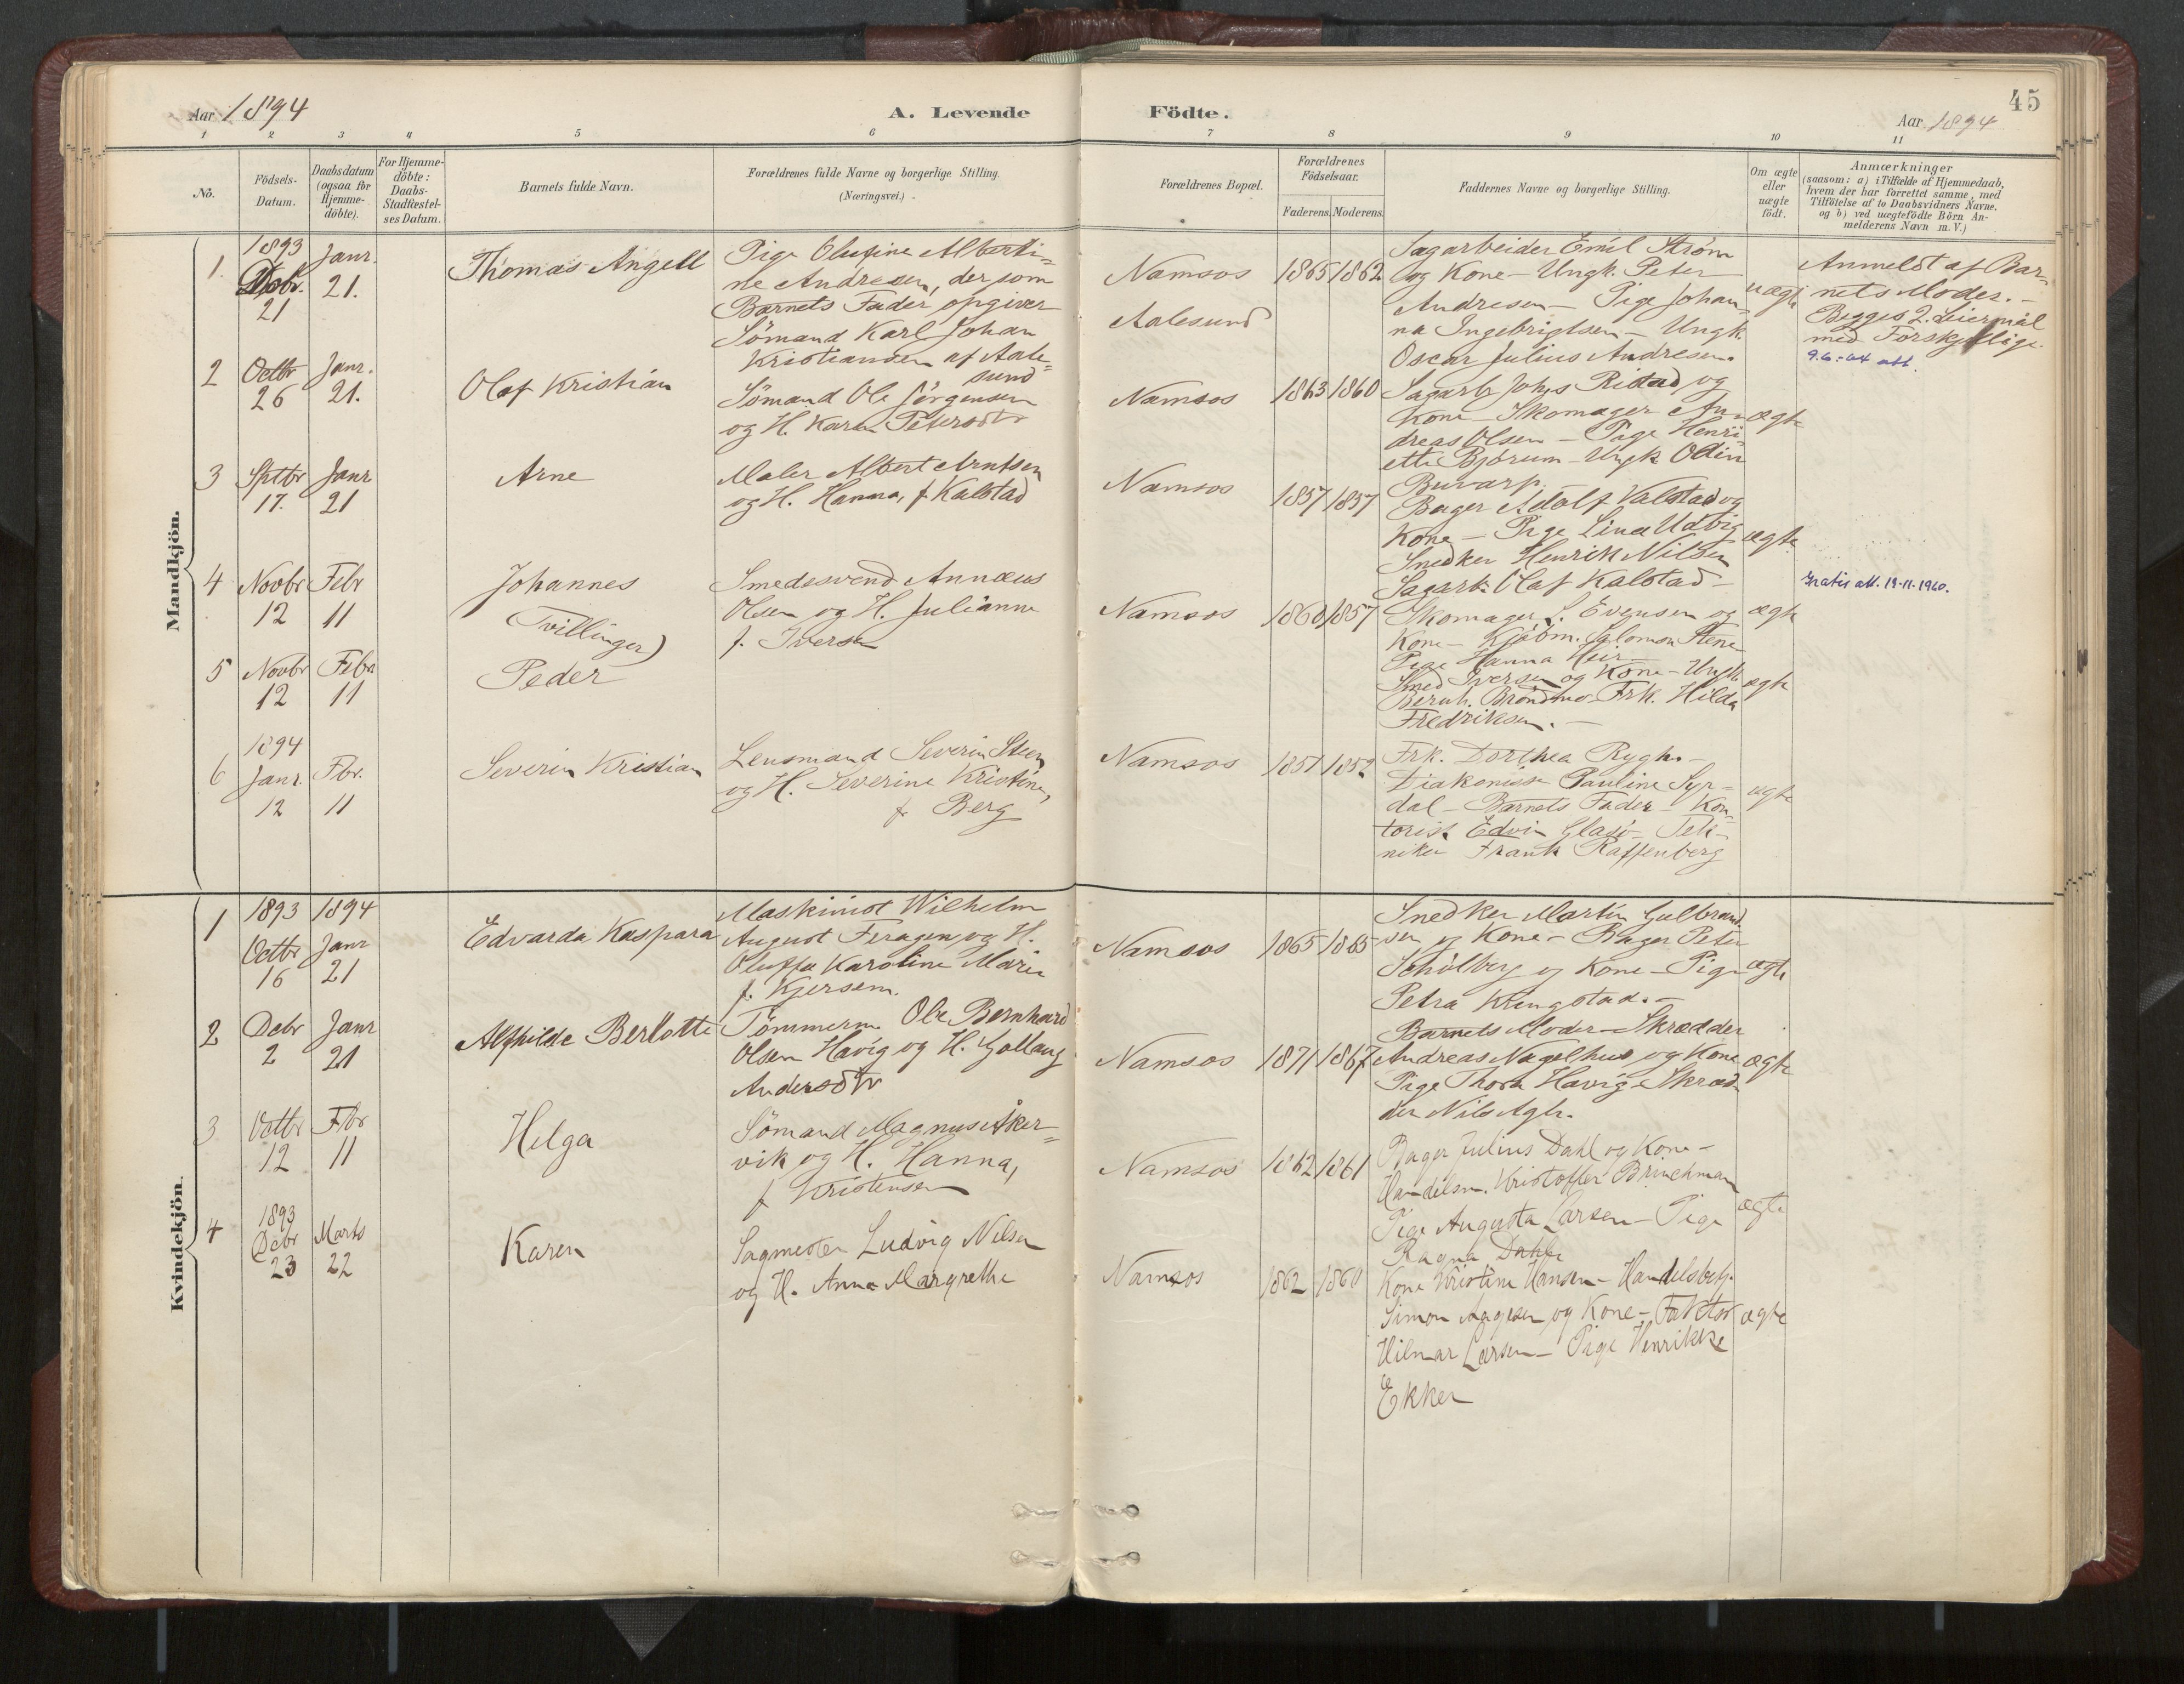 Aar 1894
A. Levende Födte.
45
Aar 1894
1 2 3 4 5 6 7 8 9 10 11
No.
Födsels-Datum.
Daabsdatum (ogsaa for Hjemme-döbte).
For Hjemme-döbte: Daabs-Stadfæstel-ses Datum.
Barnets fulde Navn.
Forældrenes fulde Navne og borgerlige Stilling. (Næringsvei.)
Forældrenes Bopæl.
Forældrenes Födselsaar.
Faderens. Moderens.
Faddernes Navne og borgerlige Stilling.
Om ægte eller uægte födt.
Anmærkninger
(saasom: a) i Tilfælde af Hjemmedaab,
hvem der har forrettet samme, med
Tilföielse af to Daabsvidners Navne.
og b) ved uægtefödte Börn An-
melderens Navn m. V.)
Mandkjön.
1. 1893 Debr. 21
Janr. 21.
Thomas Angell
Pige Olufine Alberti=
ne Andresen, der som
Barnets Fader opgiver
Sömand Karl Johan
Kristiansen af Aale=
sund
Namsos
Aalesund
1865 1862
Sagarbeider Emil Strøm
og Kone - Ungk. Peter
Andresen - Pige Johan-
na Ingebrigtsen - Ungk.
Oscar Julius Andresen.
uægte
Anmeldt af Bar-
nets Moder. -
Begges 2. Leiermål
med Forskjellige.
9.6.-64 att.
2 Octbr 26
Janr. 21.
Olaf Kristian
Sömand Ole Jörgensen
og H. Karen Petersdtr
Namsos
1863 1860
Sagarb. Johs Ristad og
Kone - Skomager An-
dreas Olsen - Pige Henri-
ette Bjørum - Ungk Odin
Buvarp.
ægte
3 Sptbr 17.
Janr 21
Arne
Maler Albert Arntsen
og H. Hanna, f. Kalstad
Namsos
1857 1857
Bager Adolf Valstad og
Kone - Pige Lina Udvig
Snedker Henrik Nilsen
Sagarb. Olaf Kalstad -
ægte
4 Novbr 12
Febr 11
Johannes
(Tvillinger)
Smedesvend Annæus
Olsen og H. Julianne
f. Iversen
Namsos
1860 1857
Skomager L. Evensen og
Kone - Kjöbm. Salomon Stene
Pige Hanna
ægte
Gratis att. 19-11-1960.
5 Novbr 12
Febr 11
Peder
Smed Iversen og Kone - Ungk.
Bernh. Brøndmo - Frk. Hilda
Fredriksen. -
ægte
6 1894 Janr. 12
Fbr. 11
Severin Kristian
Lensmand Severin Steen
og H. Severine Kristine,
f. Berg
Namsos
1851 1852
Frk. Dorthea Rygh. -
Diakonisse Pauline Syr-
dal - Barnets Fader - Kon-
torist Edvin Glasö - Tek-
niker Frank Raffenberg
ægte
Kvindekjön.
1 1893 Octbr 16
1894 Janr 21
Edvarda Kaspara
Maskinist Wilhelm
August Feragen og H.
Oluffa Karoline Marie
f. Kjersem.
Namsos
1865 1865
Snedker Martin Gulbrand
sen og Kone - Bager Peter
Schölberg og Kone - Pige
Petra Kringstad. -
ægte
2 Debr 2
Janr 21
Alfhilde Berlotte
Tömmerm. Ole Bernhard
Olsen Havig og H. Gollaug
Andersdtr
Namsos
1871 1867
Barnets Moder - Skrædder
Andreas Nagelhus og Kone
Pige Thora Havig - Skræd
der Nils Agle.
ægte
3 Octbr 12
Fbr 11
Helga
Sömand Magnus Aker=
vik og H. Hanna,
f. Kristensen
Namsos
1862 1861
Bager Julius Dahl og Kone -
Handelsm. Kristoffer Brinchmann
Pige Augusta Larsen - Pige
Ragna Dahl
ægte
4 1893 Debr 23
Marts 22
Karen
Sagmester Ludvig Nilsen
og H. Anna Margrethe
Namsos
1862 1860
Kone Kristine Hansen - Handelsbetj.
Simon Aagesen og Kone - Faktor
Hilmar Larsen - Pige Henrikke
Ekker
ægte